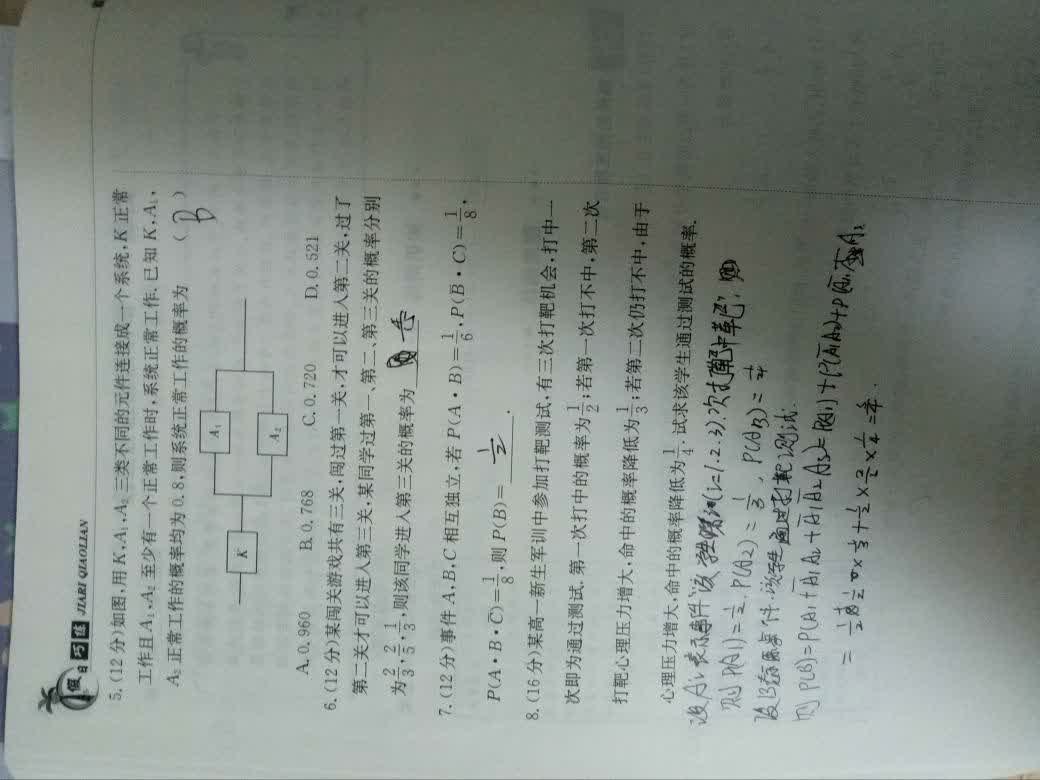 假日巧练 JIARI QIAOLIAN
5.(12分)如图,用K,A₁,A₂三类不同的元件连接成一个系统,K正常
工作且A₁,A₂至少有一个正常工作时,系统正常工作.已知K,A₁,
A₂正常工作的概率均为0.8,则系统正常工作的概率为 ( B )
K
A₁
A₂
A.0.960 B.0.768 C.0.720 D.0.521
6.(12分)某闯关游戏共有三关,闯过第一关,才可以进入第二关,过了
第二关才可以进入第三关.某同学过第一、第二、第三关的概率分别
为2/3,2/5,1/3,则该同学进入第三关的概率为
7.(12分)事件A,B,C相互独立,若P(A·B)=1/6,P(B̄·C)=1/8,
P(A·B·C̄)=1/8,则P(B)= 1/2 .
8.(16分)某高一新生军训中参加打靶测试,有三次打靶机会,打中一
次即为通过测试.第一次打中的概率为1/2;若第一次打不中,第二次
打靶心理压力增大,命中的概率降低为1/3;若第二次仍打不中,由于
心理压力增大,命中的概率降低为1/4.试求该学生通过测试的概率.
设Ai表示事件"该学生第i(i=1.2.3)次打靶中靶",则
则P(A1)=1/2,P(A2)=1/3,P(A3)=1/4
设B表示事件"该学生通过打靶测试.
则P(B)=P(A1+Ā1A2+Ā1Ā2A3)=P(A1)+P(Ā1A2)+P(Ā1Ā2A3
=1/2+1/2×1/3+1/2×2/3×1/4=3/4.